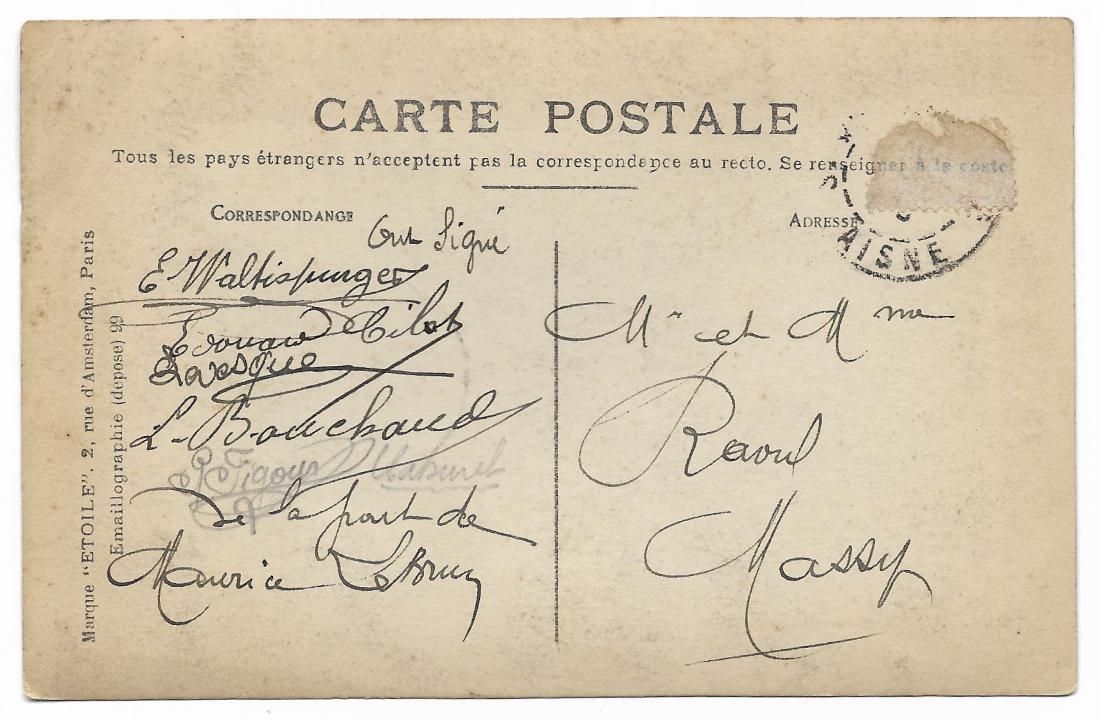 CARTE POSTALE
Tous les pays étrangers n'acceptent pas la correspondance au recto. Se renseigner à la poste
CORRESPONDANCE
ADRESSE
AISNE
Ont Signé
E Waltisperger
Edouard
Levesque
L. Bouchaud
P. Figours
De la part de
Maurice LeBrun
Mr et Mme
Raoul
Massy
Marque "ETOILE". 2, rue d'Amsterdam, Paris
Emaillographie (deposé) 99